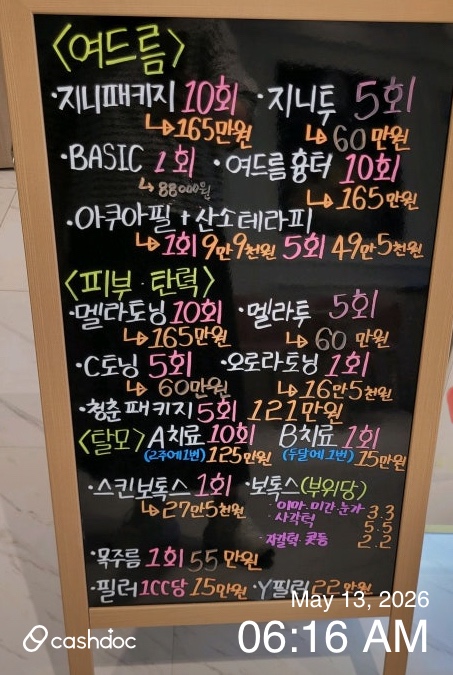 <여드름>
·지니패키지 10회 ·지니투 5회
↳165만원 ↳60만원
·BASIC 1회 ·여드름흉터 10회
↳88000원 ↳165만원
·아쿠아필+산소테라피
↳1회 9만9천원 5회 49만5천원
<피부·탄력>
·멜라토닝 10회 ·멜라투 5회
↳165만원 ↳60만원
·C토닝 5회 ·오로라토닝 1회
↳60만원 ↳16만5천원
·청춘패키지 5회 121만원
<탈모> A치료 10회 B치료 1회
(2주에1번) 125만원 (두달에1번) 15만원
·스킨보톡스 1회 ·보톡스(부위당)
↳27만5천원 ·이마·미간·눈가 3.3
·사각턱 5.5
·자갈턱·콧등 2.2
·목주름 1회 55만원
·필러 1CC당 15만원 ·Y필링 22만원
May 13, 2026
cashdoc 06:16 AM